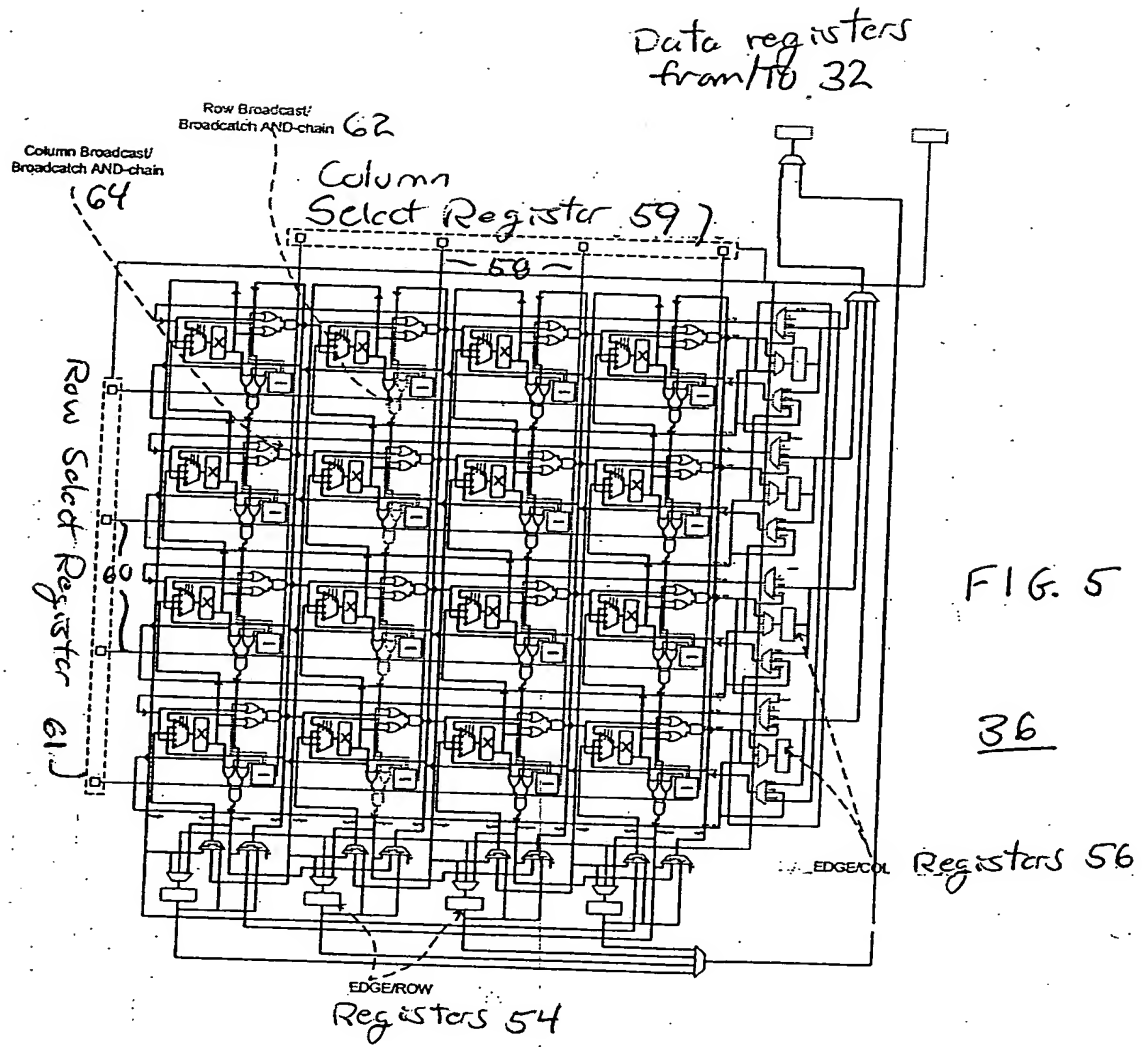 Data registers
from/To 32
Row Broadcast/
Broadcatch AND-chain 62
Column Broadcast/
Broadcatch AND-chain
64
Column
Select Register 59
58
Row Select Register 61
60
X X X X
X X X X
X X X X
X X X X
FIG. 5
36
EDGE/COL Registers 56
EDGE/ROW
Registers 54